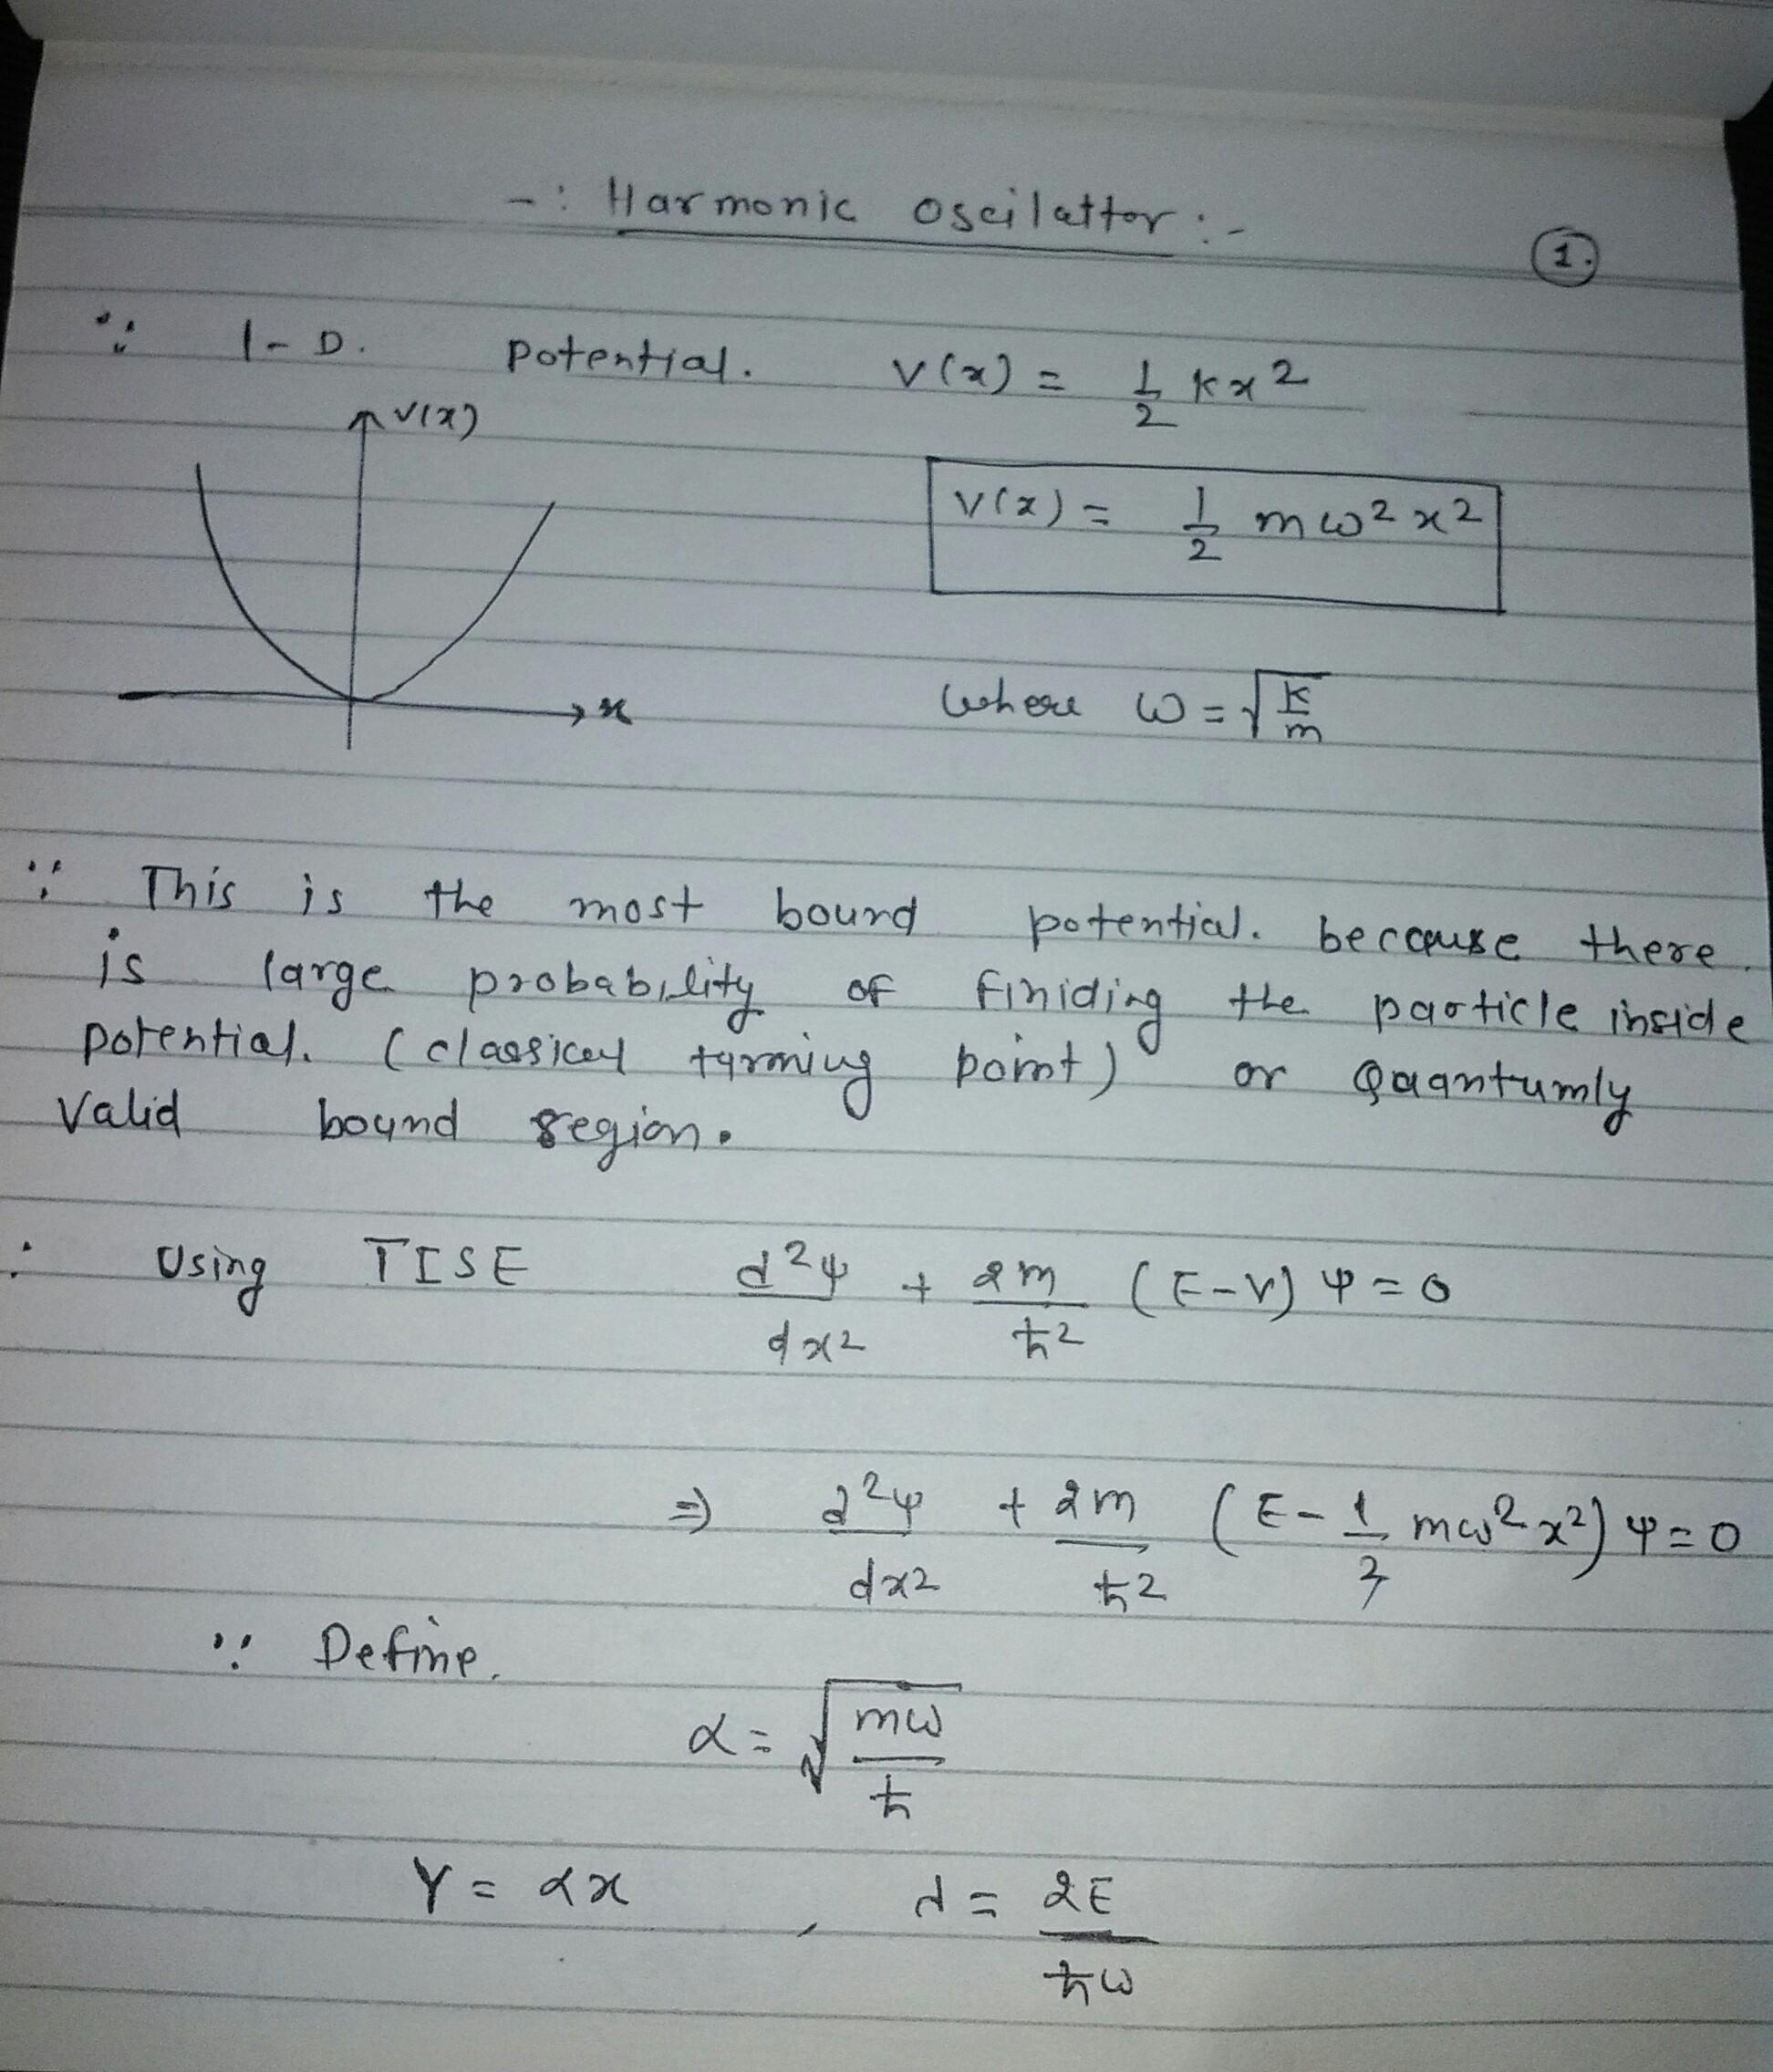 -: Harmonic oscilattor :-
1.
∵ 1-D. potential. V(x) = 1/2 kx²
V(x)
V(x) = 1/2 mω²x²
x
where ω = √(k/m)
∵ This is the most bound potential. because there.
is large probability of finiding the particle inside
potential. (classical turning point) or Quantumly
Valid bound region.
∴ Using TISE d²ψ/dx² + 2m/ħ² (E-V) ψ = 0
⇒ d²ψ/dx² + 2m/ħ² (E - 1/2 mω²x²) ψ = 0
∵ Define.
α = √(mω/ħ)
Y = αx , λ = 2E/ħω